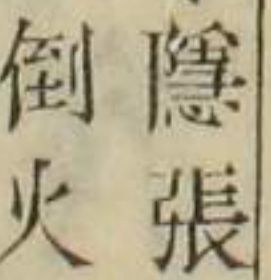 隱張
倒火